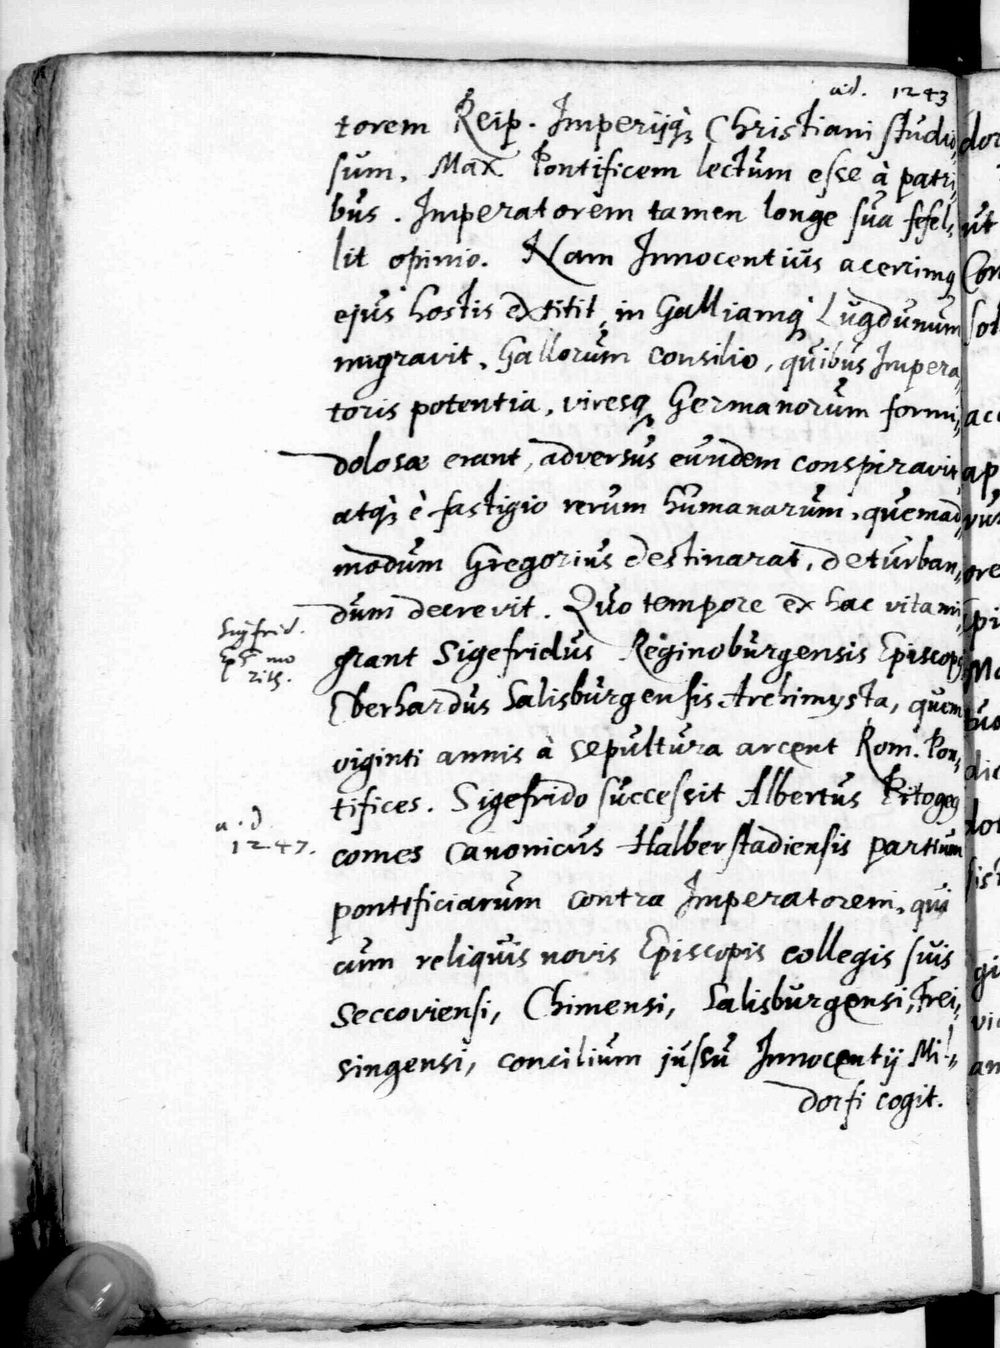 a.d. 1243
torem Reip. Imperijq; Christiani studio,
sum, Max. Pontificem lectum esse à patri,
bus. Imperatorem tamen longe sua fefel,
lit opinio. Nam Innocentius acerrimq
ejus hostis extitit, in Galliamq; Lugdunum
migravit, Gallorum consilio, quibus Impera,
toris potentia, viresq Germanorum formi,
dolosæ erant, adversus eundem conspiravit,
atq; è fastigio rerum humanarum, quemad,
modum Gregorius destinarat, deturban,
dum decrevit. Quo tempore ex hac vita mi,
grant Sigefridus Reginoburgensis Episcopq
Eberhardus Salisburgensis Archimysta, quem
viginti annis à sepultura arcent Rom. Pon,
tifices. Sigefrido successit Albertus Pitogeq
comes Canonicus Halberstadiensis partium
pontificiarum contra Imperatorem, qui
cum reliquis novis Episcopis collegis suis
Seccoviensi, Chimensi, Salisburgensi, Frei,
singensi, concilium jussu Innocentij Mil,
dorfi cogit.
Sigfrid.
Eps mo
ritr.
a.d.
1247.